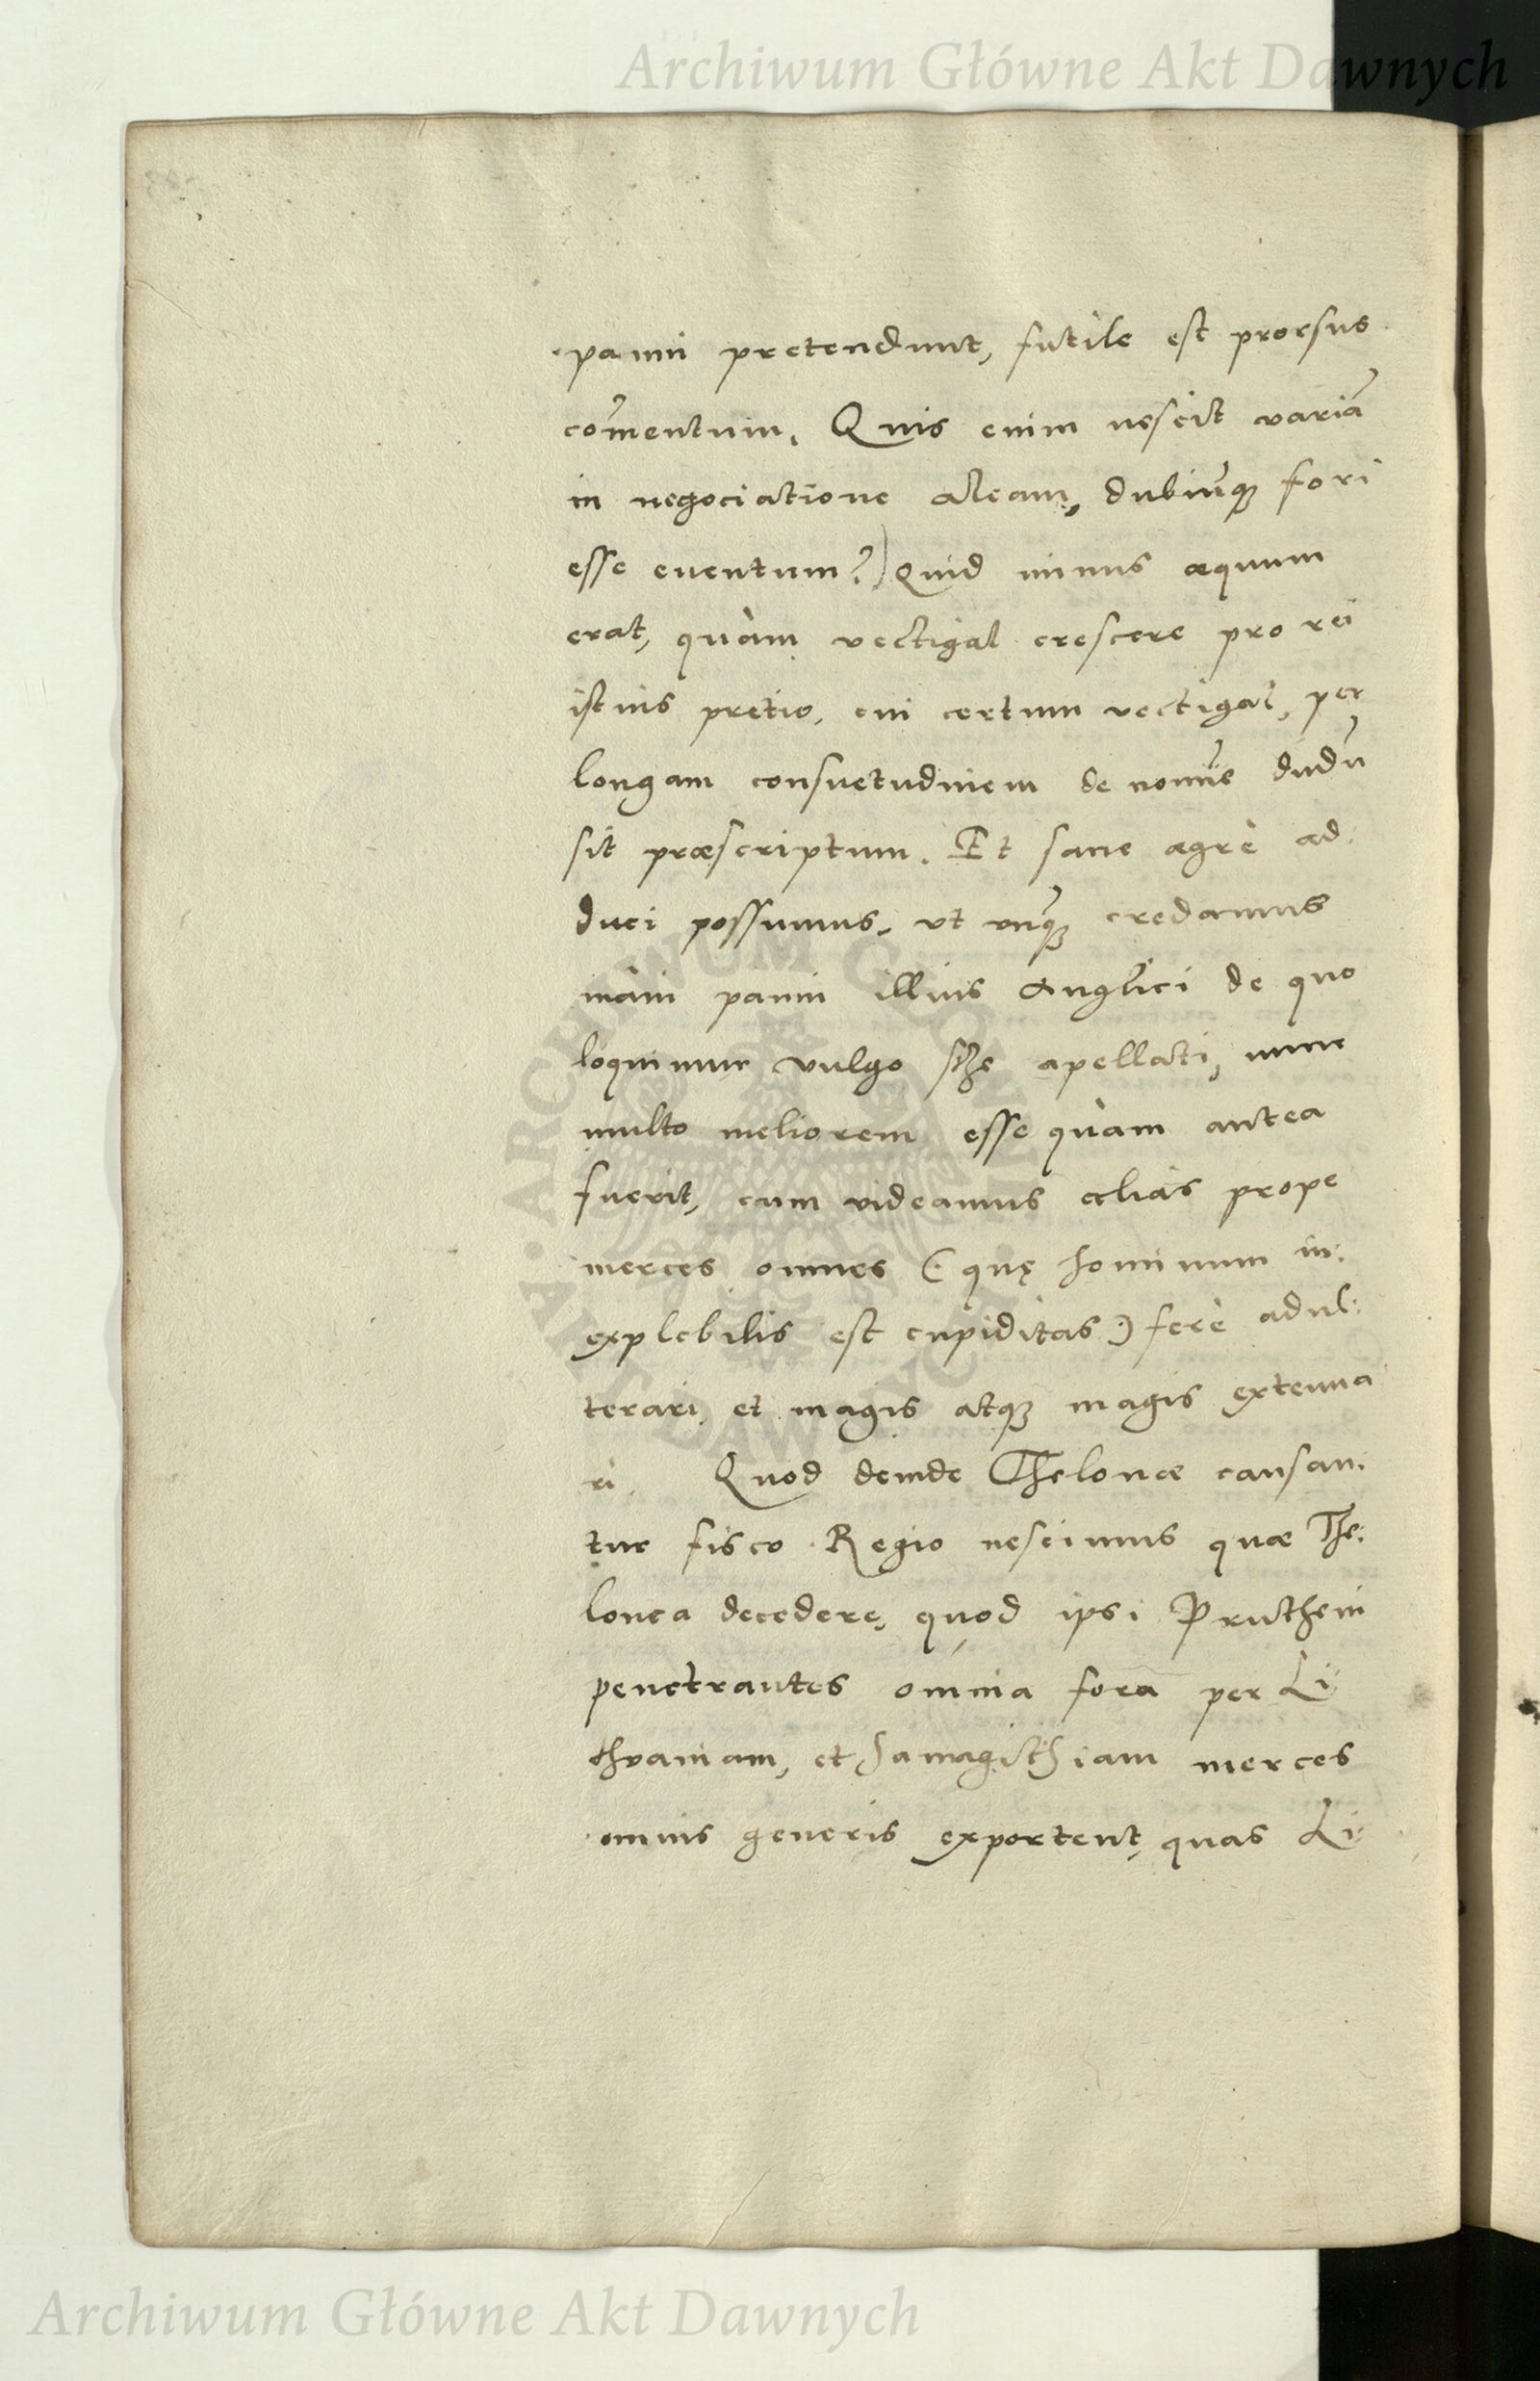 Archiwum Główne Akt Dawnych
panni pretendunt, futile est prorsus
com̄entum. Quis enim nescit variā
in negociatione aleam, dubiūq́ fori
esse euentum?) Quid minus æquum
erat, quàm vectigal crescere pro rei
istius pretio, cui certum vectigal, per
longam consuetudinem de nomīe dudū
sit præscriptum. Et sane ægrè ad:
duci possumus, vt vnq̄ credamus
panni illius Anglici de quo
loquimur vulgo apellati, nunc
multo meliorem esse quàm antea
fuerit, cum videamus aliàs prope
merces omnes (: quę hominum in:
explebilis est cupiditas :) ferè adul:
terari, et magis atq́ magis extenua
ri. Quod deinde Thelonæ causan:
tur fisco Regio nescimus quæ The:
lonea decedere, quod ipsi Prutheni
penetrantes omnia fora per Li:
thvaniam, et Samagithiam merces
omnis generis exportent, quas Li:
ARCHIWUM GŁÓWNE AKT DAWNYCH
Archiwum Główne Akt Dawnych